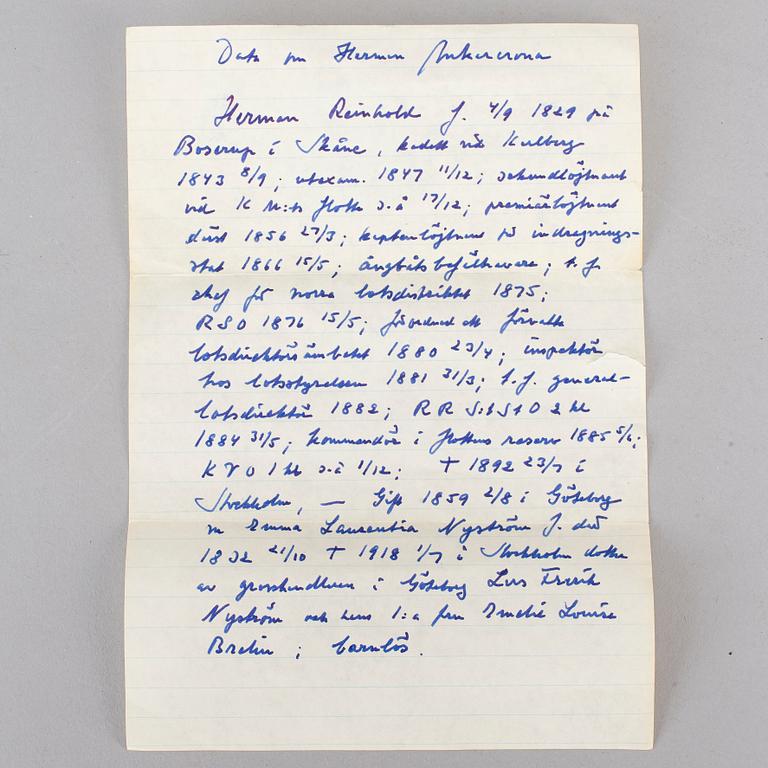 Data om Herman Ankarcrona
Herman Reinhold f. 4/9 1829 på
Boserup i Skåne, kadett vid Karlberg
1843 8/9; utexam. 1847 11/12; sekundlöjtnant
vid K M:ts flotta s.å 17/12; premiärlöjtnant
därst 1856 27/3; kaptenlöjtnant på indragnings-
stat 1866 15/5; ångbåtsbefälhavare; t.f.
chef för norra lotsdistriktet 1875;
RSO 1876 15/5; förordnad att förvalta
lotsdirektörsämbetet 1880 23/4; inspektör
hos lotsstyrelsen 1881 31/3; t.f. general-
lotsdirektör 1882; RR S:t St O 2 kl
1884 31/5; kommendör i flottans reserv 1885 5/6;
KVO 1 kl s.å 1/12; † 1892 23/7 i
Stockholm, — Gift 1859 2/8 i Göteborg
m Emma Laurentia Nyström f. där
1832 21/10 † 1918 1/7 i Stockholm dotter
av grosshandlaren i Göteborg Lars Fredrik
Nyström och hans 1:a fru Emelie Louise
Brelin; barnlös.